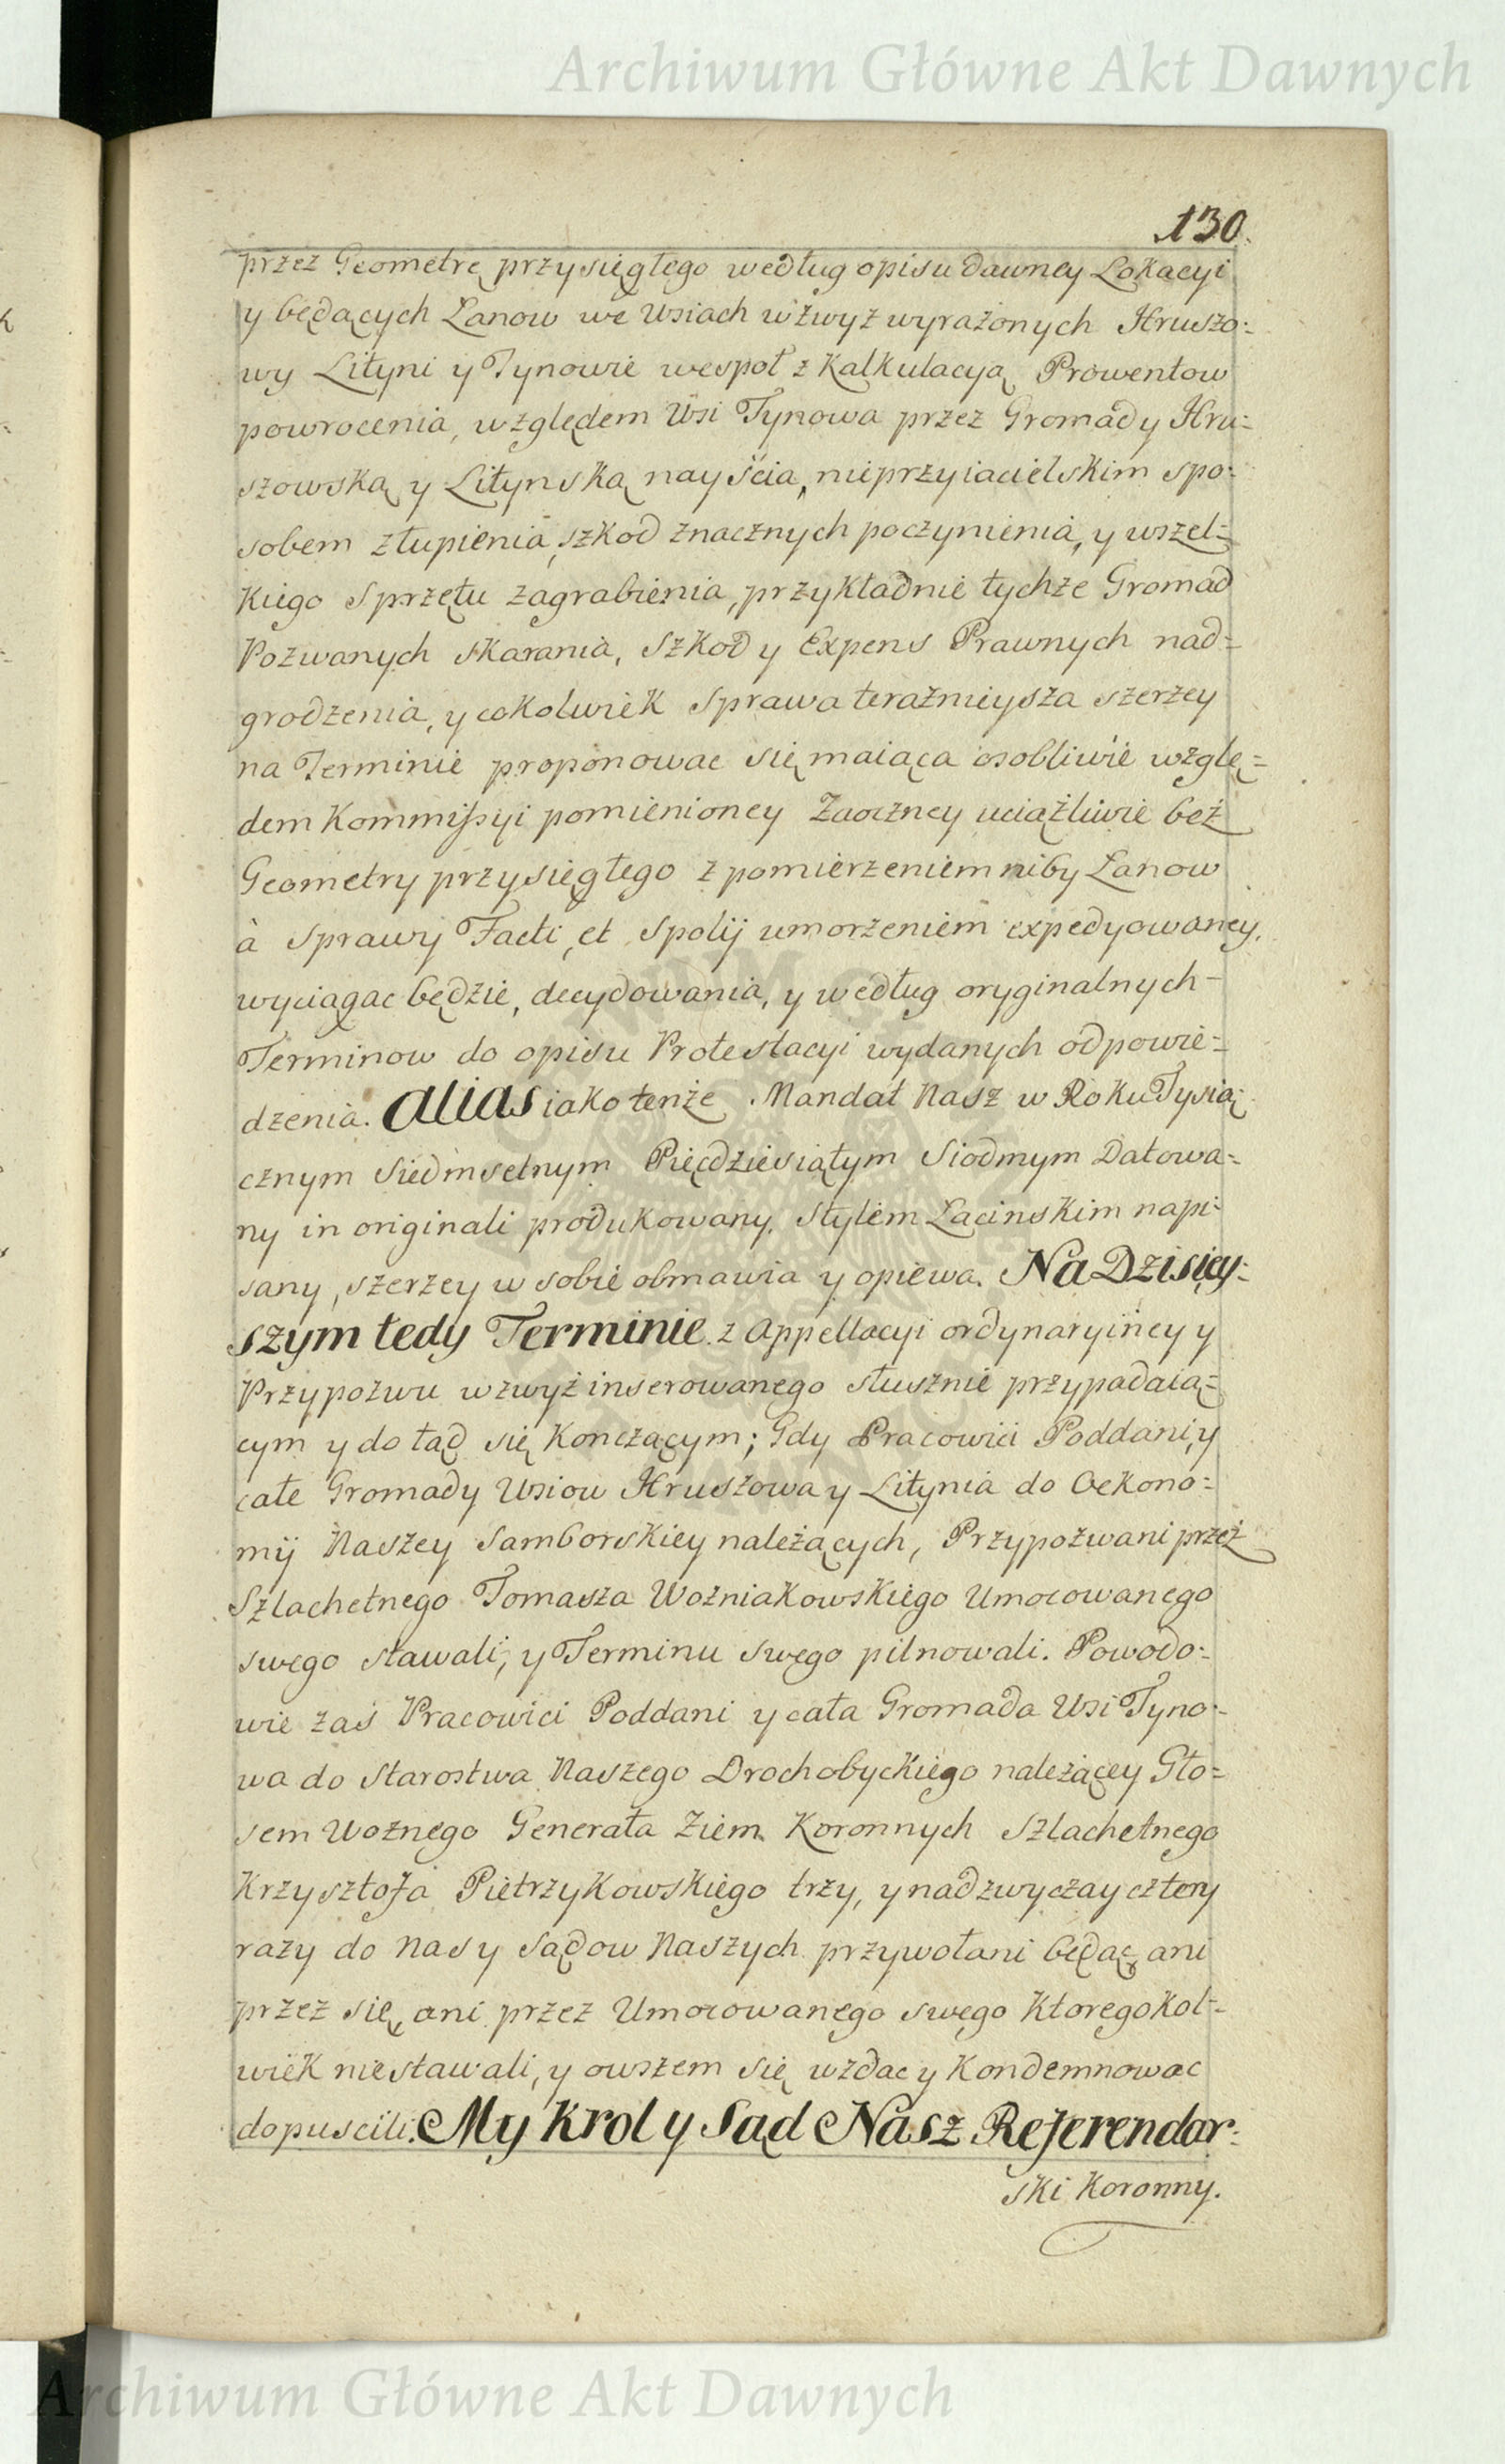 Archiwum Główne Akt Dawnych
130.
przez Geometrę przysięgłego według opisu dawney Lokacyi
y będących Łanow we Wsiach wżwyż wyrażonych Hruszo:
wy Lityni y Tynowie wespoł z Kalkulacyą Prowentow
powrocenia, względem Wsi Tynowa przez Gromady Hru=
szowską y Lityńską nayścia, nieprzyiacielskim spo:
sobem złupienia, szkod znacznych poczynienia, y wszel=
kiego Sprzętu zagrabienia, przykładnie tychże Gromad
Pozwanych skarania, Szkod y Expens Prawnych nad=
grodzenia, y cokolwiek Sprawa teraźnieysza szerzey
na Terminie proponowac się maiąca osobliwie wzglę=
dem Kommissyi pomienioney Zaoczney uciążliwie beż
Geometry przysięgłego z pomierzeniem niby Łanow
à Sprawy Facti, et Spolij umorzeniem expedyowaney,
wyciągac będzie, decydowania, y według oryginalnych-
Terminow do opisu Protestacyi wydanych odpowie=
dzenia. Alias iako tenże Mandat Nasz w Roku Tysią:
cznym Siedmsetnym Pięcdziesiątym Siodmym Datowa=
ny in originali produkowany, Stylem Łacinskim napi:
sany, szerzey w sobie obmawia y opiewa. Na Dzisiey:
szym tedy Terminie z Appellacyi ordynaryiney y
Przypozwu wzwyż inserowanego słusznie przypadaią=
cym y do tąd się Konczącym; Gdy Pracowici Poddani, y
całe Gromady Wsiow Hruszowa y Litynia do Oekono=
mij Naszey Samborskiey należących, Przypozwani przeż
Szlachetnego Tomasza Wozniakowskiego Umocowanego
swego stawali, y Terminu swego pilnowali. Powodo:
wie zaś Pracowici Poddani y cała Gromada Wsi Tyno:
wa do Starostwa Naszego Drochobyckiego należącey Gło=
sem Woznego Generała Ziem Koronnych Szlachetnego
Krzysztofa Pietrzykowskiego trzy, y nad zwyczay cztery
razy do Nas y Sądow Naszych przywołani będąc, ani
przez się, ani przez Umocowanego swego Ktoregokol=
wiek niestawali, y owszem się wzdac y Kondemnowac
dopuscili. My Krol y Sąd Nasz Referendar:
ski Koronny.
Archiwum Główne Akt Dawnych